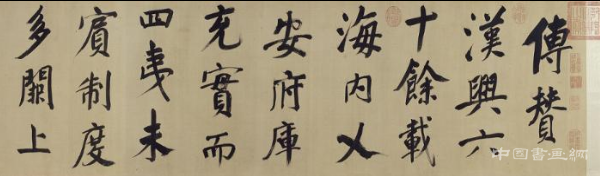 傳贊
漢興六
十餘載
海内乂
安府庫
充實而
四夷未
賓制度
多闕上
中国書画網